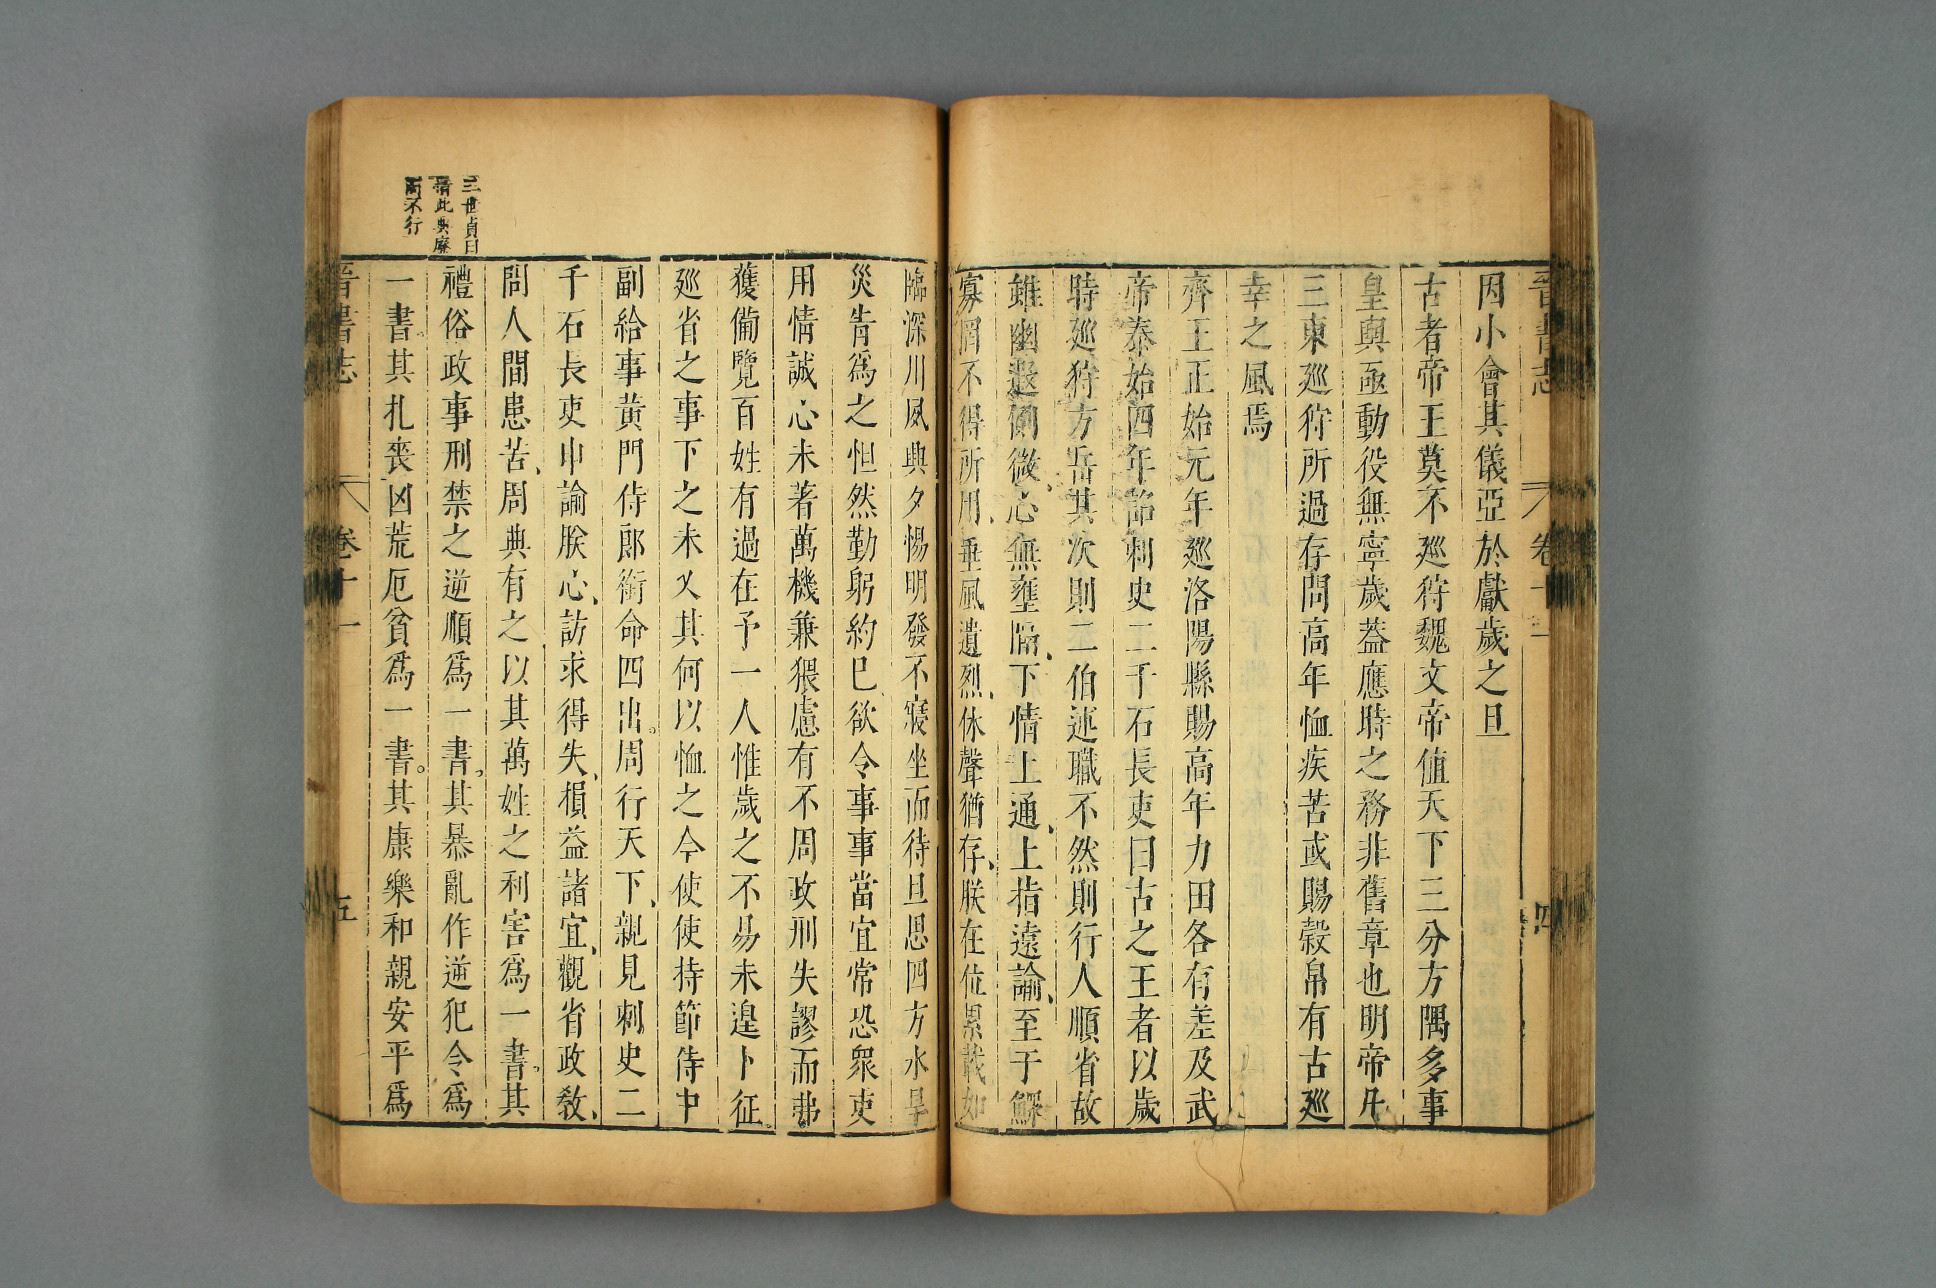 因小會其儀亞於獻歲之旦
古者帝王莫不廵狩魏文帝值天下三分方隅多事
皇輿亟動役無寧歲葢應時之務非舊章也明帝凡
三東廵狩所過存問高年恤疾苦或賜穀帛有古廵
幸之風焉
齊王正始元年廵洛陽縣賜高年力田各有差及武
帝泰始四年詔刺史二千石長吏曰古之王者以歲
時廵狩方岳其次則二伯述職不然則行人順省故
雖幽遐側微心無壅隔下情上通上指遠諭至于鰥
寡罔不得所用垂風遺烈休聲猶存朕在位累載如
晉書志 卷十一 四
臨深川夙興夕惕明發不寐坐而待旦思四方水旱
災眚爲之怛然勤躬約巳欲令事事當宜常恐衆吏
用情誠心未著萬機兼猥慮有不周政刑失謬而弗
獲備覽百姓有過在予一人惟歲之不易未遑卜征
廵省之事下之未乂其何以恤之今使使持節侍中
副給事黃門侍郎銜命四出周行天下親見刺史二
千石長吏申諭朕心訪求得失損益諸宜觀省政敎
問人間患苦周典有之以其萬姓之利害爲一書其
禮俗政事刑禁之逆順爲一書其暴亂作逆犯令爲
一書其札喪凶荒厄貧爲一書其康樂和親安平爲
王世貞曰
惜此典廢
而不行
晉書志 卷十一 五